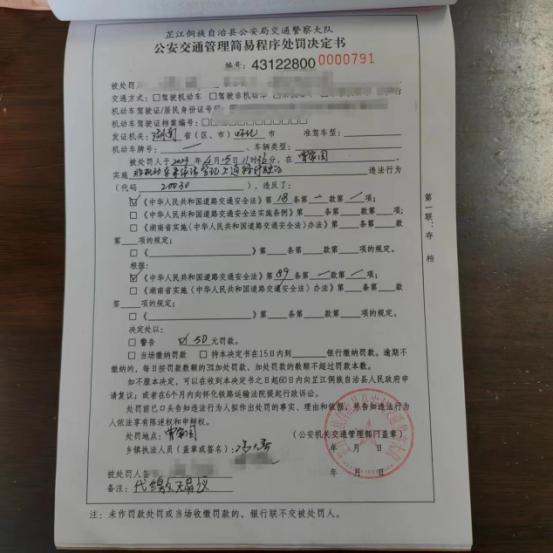 芷江侗族自治县公安局交通警察大队
公安交通管理简易程序处罚决定书
编号：43122800 0000791
被处罚
交通方式：□驾驶机动车 □驾驶非机动车
机动车驾驶证/居民身份证号
机动车驾驶证档案编号：
发证机关：湖南省（区、市）怀化市 准驾车型：
机动车牌号： / 、车辆类型：
被处罚人于 年4月 日11时 分，在
实施 违法行为
（代码 20030 ），违反了：
☑《中华人民共和国道路交通安全法》第18条第一款第 项；
□《中华人民共和国道路交通安全法实施条例》第 条第 款第 项；
□《湖南省实施〈中华人民共和国道路交通安全法〉办法》第 条第 款
第 项的规定；
□《 》第 条第 款第 项的规定。
根据：
☑《中华人民共和国道路交通安全法》第89条第一款第 项；
□《湖南省实施〈中华人民共和国道路交通安全法〉办法》第 条第 款
第 项的规定；
□《 》第 条第 款第 项的规定。
决定处以：
□ 警告 ☑ 50元罚款。
□ 当场缴纳罚款 □ 持本决定书在15日内到 银行缴纳罚款。逾期不
缴纳的，每日按罚款数额的3%加处罚款，加处罚款的数额不超过罚款本数。
如不服本决定，可以在收到本决定书之日起60日内向芷江侗族自治县人民政府申
请复议；或者在6个月内向怀化铁路运输法院提起行政诉讼。
处罚前已口头告知违法行为人拟作出处罚的事实、理由和依据，并告知违法行为
人依法享有陈述权和申辩权。
处罚地点：
（公安机关交通管理部门盖章）
乡镇执法人员（盖章或签名）： 年 月 日
被处罚人签 年 月 日
备注：
注：未作罚款处罚或当场收缴罚款的，银行联不交被处罚人。
第一联：存档